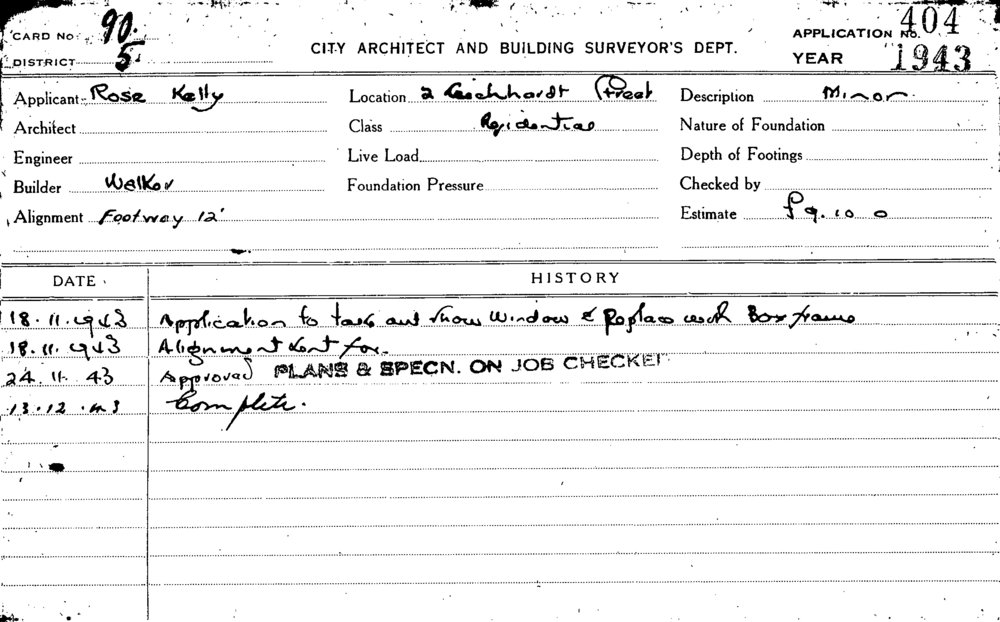 CARD No. 90.
DISTRICT 5.
CITY ARCHITECT AND BUILDING SURVEYOR'S DEPT.
APPLICATION No. 404
YEAR 1943
Applicant Rose Kelly Location 2 Leichhardt Street Description Minor
Architect Class Residential Nature of Foundation
Engineer Live Load Depth of Footings
Builder Walker Foundation Pressure Checked by
Alignment Footway 12' Estimate £9. 10 0
DATE HISTORY
18.11.1943 Application to take out show window & Replace with Box frame
18.11.1943 Alignment sent for.
24.11.43 Approved PLANS & SPECN. ON JOB CHECKED
13.12.43 Complete.